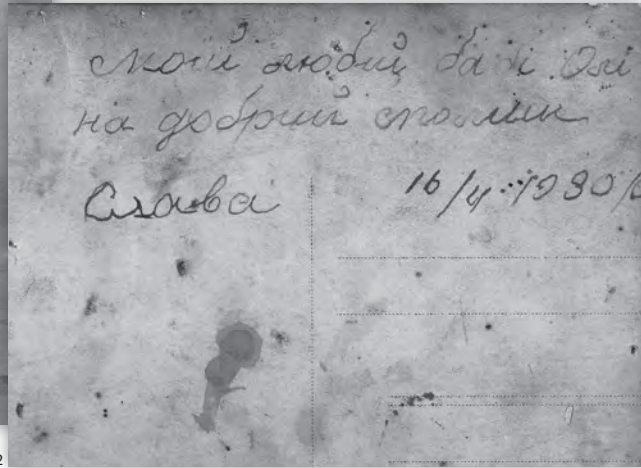 моїй любій бабі Олі
на добрий спомин
Слава 16/4 1930
2